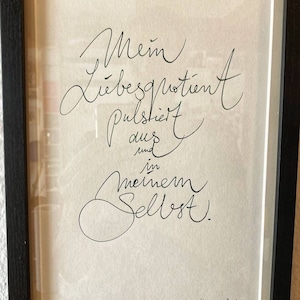 Mein
Liebesquotient
pulsiert
aus
und
in
meinem
Selbst.